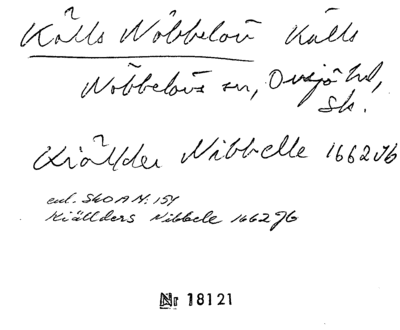 Källs Nöbbelöv Källs
Nöbbelövs sn, Onsjö hd,
Sk.
Kiällder Nibbelle 1662 Jb
enl. SkOA N: 151
Kiällders Nibbele 1662 Jb
Nr 18121